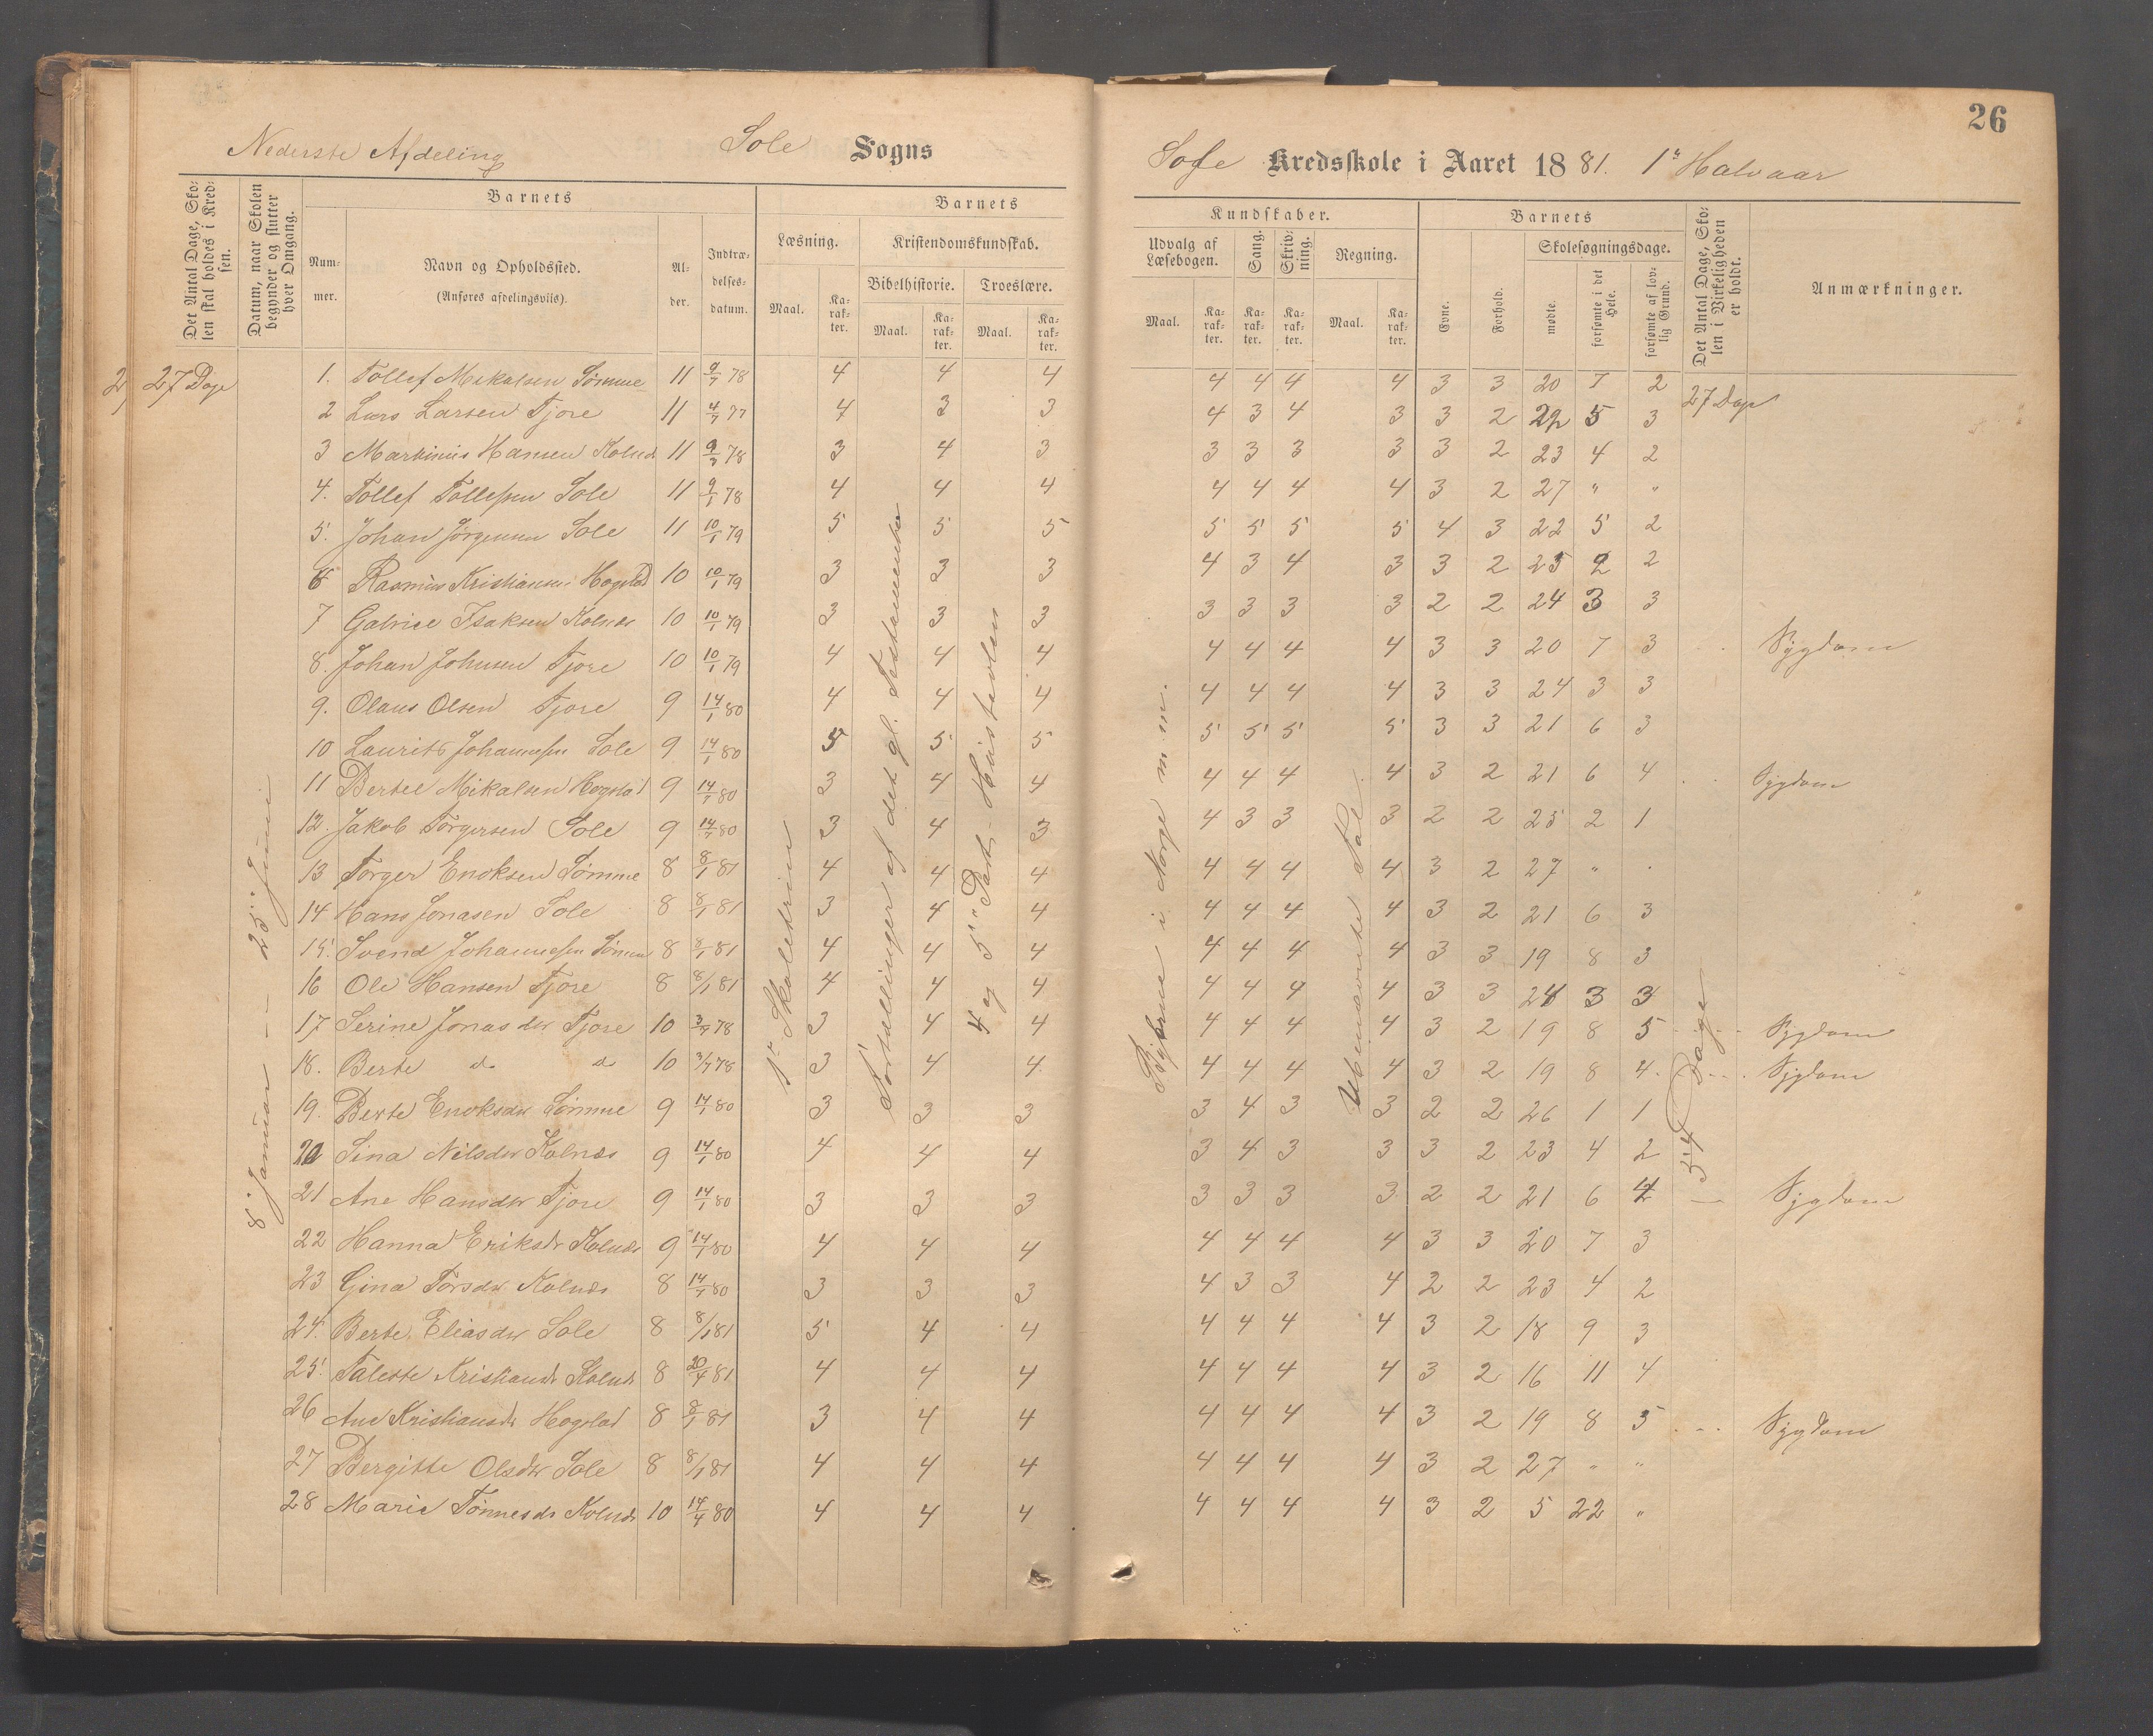 26
Nederste Afdeling Sole Sogns Sole Kredsskole i Aaret 1881. 1ste Halvaar
Det Antal Dage, Skolen skal holdes i Kredsen. Datum, naar Skolen begynder og slutter hver Omgang. Barnets Barnets Kundskaber. Barnets Det Antal Dage, Skolen i Virkeligheden er holdt. Anmærkninger.
Nummer. Navn og Opholdssted. (Anføres afdelingsvis). Alder. Indtrædelsesdatum. Læsning. Kristendomskundskab. Udvalg af Læsebogen. Sang. Skrivning. Regning. Evne. Forhold. Skolesøgningsdage.
Maal. Karakter. Bibelhistorie. Troeslære. Maal. Karakter. Karakter. Karakter. Maal. Karakter. mødte. forsømte i det Hele. forsømte af lovlig Grund.
Maal. Karakter. Maal. Karakter.
27 Dage 1. Tollef Mikalsen Sømme 11 9/7 78 4 4 4 4 4 4 4 3 3 20 7 2 27 Dage
2 Lars Larsen Tjore 11 4/7 77 4 3 3 4 3 4 3 3 2 22 5 3
3 Martinius Hansen Kolnes 11 9/7 78 3 4 3 3 3 3 3 3 2 23 4 2
4. Tollef Tollefsen Sole 11 9/1 78 4 4 4 4 4 4 4 3 2 27 " "
5. Johan Jørgensen Sole 11 10/1 79 5 5 5 5 5 5 5 4 3 22 5 2
6 Rasmus Kristiansen Hogstad 10 10/1 79 3 3 3 4 3 4 3 3 2 25 2 2
7 Gabriel Isaksen Kolnes 10 10/1 79 3 3 3 3 3 3 3 2 2 24 3 3
8. Johan Johnsen Tjore 10 10/1 79 4 4 4 4 4 4 4 3 3 20 7 3 Sygdom
9. Olaus Olsen Tjore 9 14/1 80 4 4 4 4 4 4 4 3 3 24 3 3
10 Laurits Johannessen Sole 9 14/1 80 5 5 5 5 5 5 5 3 3 21 6 3
11 Bertel Mikalsen Hogstad 9 14/1 80 3 4 4 4 4 4 4 3 2 21 6 4 Sygdom
12. Jakob Torgersen Sole 9 14/7 80 3 4 3 4 3 3 3 2 2 25 2 1
13 Torger Enoksen Sømme 8 8/1 81 4 4 4 4 4 4 4 3 2 27 " "
14 Hans Jonasen Sole 8 8/1 81 3 4 4 4 4 4 4 3 2 21 6 3
15. Svend Johannessen Sømme 8 8/1 81 4 4 4 4 4 4 4 3 3 19 8 3
16 Ole Hansen Tjore 8 8/1 81 4 4 4 4 4 4 4 3 3 24 3 3
17 Serine Jonasdtr Tjore 10 3/7 78 3 4 4 4 4 4 4 3 2 19 8 5 Sygdom
18. Berte do do 10 3/7 78 3 4 4 4 4 4 4 3 2 19 8 4 Sygdom
19. Berte Enoksdtr Sømme 9 14/1 80 3 3 3 3 4 3 3 2 2 26 1 1
20 Sina Nilsdtr Kolnes 9 14/1 80 4 4 4 3 4 3 3 3 2 23 4 2
21 Ane Hansdtr Tjore 9 14/1 80 3 3 3 3 3 3 3 2 2 21 6 4 Sygdom
22 Hanna Eriksdr Kolnes 9 14/1 80 4 4 4 4 4 4 4 3 3 20 7 3
23 Gina Torsdtr Kolnes 8 14/1 80 3 3 3 4 3 3 4 2 2 23 4 2
24. Berte Eliasdtr Sole 8 8/1 81 5 4 4 4 4 4 4 3 2 18 9 3
25. Taleste Kristiansdr Kolnes 8 20/4 81 4 4 4 4 4 4 4 3 2 16 11 4
26 Ane Kristiansdtr Hogstad 8 8/1 81 3 4 4 4 4 4 4 3 2 19 8 5 Sygdom
27 Bergitte Olsdtr Sole 8 8/1 81 4 4 4 4 4 4 4 3 2 27 " "
28 Marie Tønnesdr Kolnes 10 14/4 80 4 4 4 4 4 4 4 3 2 5 22 "
8de Januar -- 25de Juni
1ste Skoletrin
Fortællinger af det gl. Testamente
4 og 5te Part - Hustavlen
Byerne i Norge m. m.
Ubenævnte Tal
54 Dage